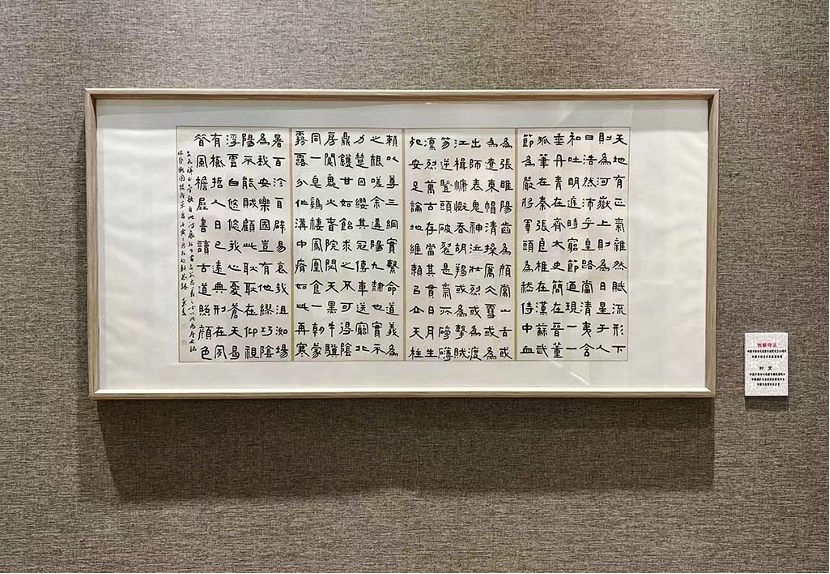 天地有正氣雜然賦流形下
則為河嶽上則為日星于人
曰浩然沛乎皇路當清夷含
和吐明廷時窮節迺現一一
垂丹青在齊太史簡在晉董
狐筆在秦張良椎在漢蘇武
節為嚴將軍頭為嵇侍中血
為張睢陽齒為顏常山舌或
為遼東帽清操厲冰雪或為
出師表鬼神泣壯烈或為渡
江楫慷慨吞胡羯或為擊賊
笏逆豎頭破裂是氣所磅礴
凜烈萬古存當其貫日月生
死安足論地維賴以立天柱
賴以尊三綱實繫命道義為
之根嗟余遘陽九隸也實不
力楚囚纓其冠傳車送窮北
鼎鑊甘如飴求之不可得陰
房闃鬼火春院閟天黑牛驥
同一皂雞棲鳳凰食一朝蒙
霧露分作溝中瘠如此再寒
暑百沴自辟易哀哉沮洳場
為我安樂國豈有他繆巧陰
陽不能賊顧此耿耿在仰視
浮雲白悠悠我心憂蒼天曷
有極哲人日已遠典刑在夙
昔風檐展書讀古道照顏色